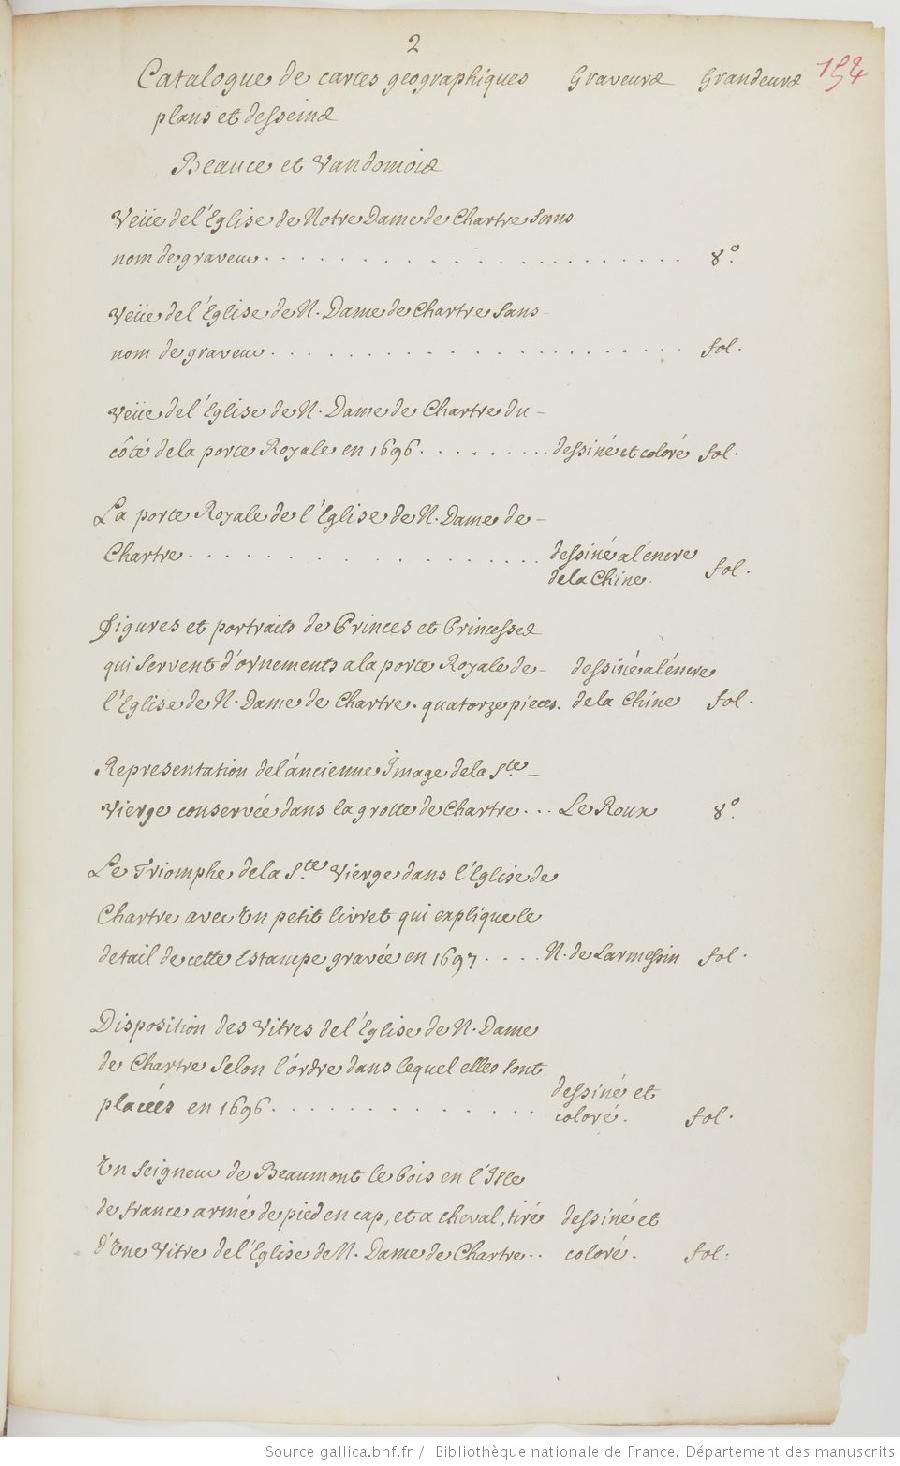 2
Catalogue de cartes geographiques Graveurs Grandeurs 154
plans et desseins
Beauce et Vandomois
Veüe de l'Eglise de Notre Dame de Chartre sans
nom de graveur . . . . . . . . . . . . . . . . . . . . 8°.
Veüe de l'Eglise de N. Dame de Chartre sans
nom de graveur . . . . . . . . . . . . . . . . . . . . fol.
Veüe de l'Eglise de N. Dame de Chartre du
côté de la porte Royale en 1696 . . . . . . . . . dessiné et coloré fol.
La porte Royale de l'Eglise de N. Dame de
Chartre . . . . . . . . . . . . . . . . dessiné a l'encre
de la Chine. fol.
figures et portraits de Princes et Princesses
qui servent d'ornements a la porte Royale de dessiné a l'encre
l'Eglise de N. Dame de Chartre. quatorze pieces. de la Chine fol.
Representation de l'ancienne Image de la Ste
Vierge conservée dans la grotte de Chartre . . . Le Roux 8°.
Le Triomphe de la Ste Vierge dans l'Eglise de
Chartre avec Un petit livret qui explique le
detail de cette Estampe gravée en 1697 . . . . N. de Larmessin fol.
Disposition des Vitres de l'Eglise de N. Dame
de Chartre selon l'ordre dans lequel elles sont
placées en 1696 . . . . . . . . . . . . . dessiné et
coloré. fol.
Un Seigneur de Beaumont le bois en l'Isle
de france armé de pied en cap, et a cheval, tiré dessiné et
d'Une Vitre de l'Eglise de N. Dame de Chartre . . coloré. fol.
Source gallica.bnf.fr / Bibliothèque nationale de France. Département des manuscrits